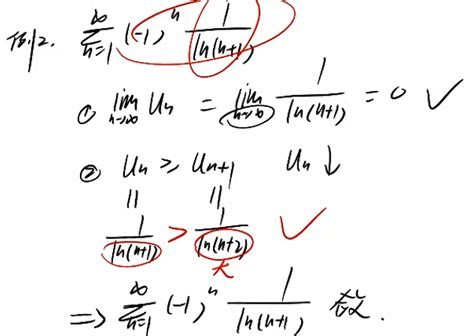 例2. ∞∑n=1 (-1)^n 1/ln(n+1)
① lim n→∞ Un = lim n→∞ 1/ln(n+1) = 0 ✓
② Un ≥ Un+1 Un ↓
|| ||
1/ln(n+1) > 1/ln(n+2) ✓
大
⇒ ∞∑n=1 (-1)^n 1/ln(n+1) 敛.